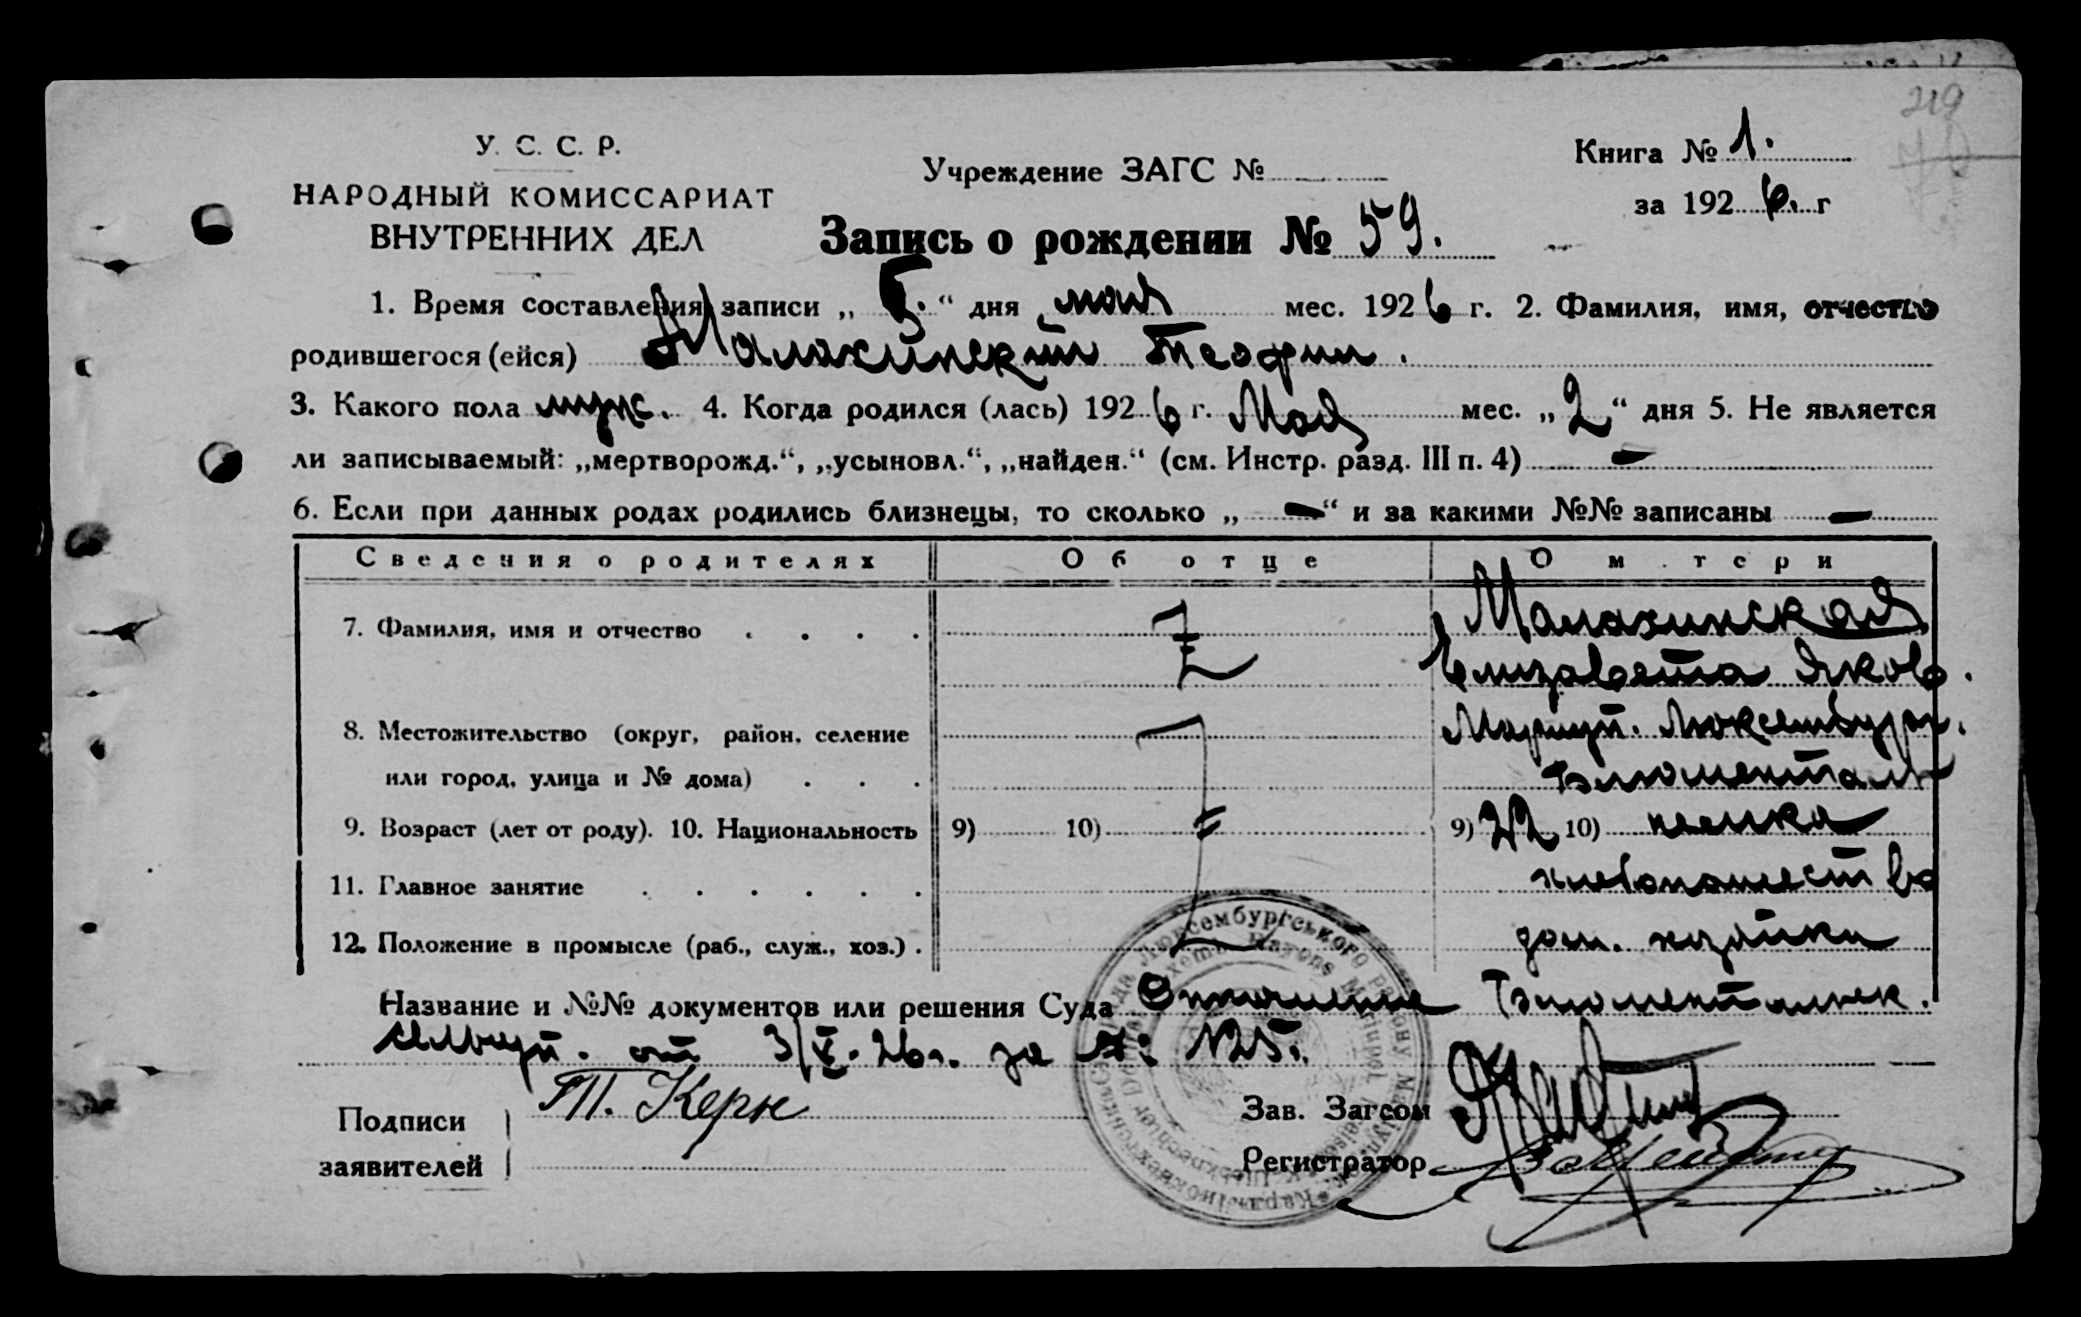 219
У. С. С. Р.
НАРОДНЫЙ КОМИССАРИАТ
ВНУТРЕННИХ ДЕЛ
Учреждение ЗАГС №
Книга № 1.
за 192 6. г
Запись о рождении № 59.
1. Время составления записи „ 5. “ дня мая мес. 192 6 г. 2. Фамилия, имя, отчество
родившегося (ейся) Малахинский Теофил.
3. Какого пола муж. 4. Когда родился (лась) 192 6 г. Мая мес. „ 2 “ дня 5. Не является
ли записываемый: „мертворожд.“, „усыновл.“, „найден.“ (см. Инстр. разд. III п. 4) —
6. Если при данных родах родились близнецы, то сколько „ — “ и за какими №№ записаны —
Сведения о родителях Об отце О м тери
7. Фамилия, имя и отчество Малахинская
Елизавета Яковл.
8. Местожительство (округ, район, селение Мариуп. Люксембург.
или город, улица и № дома) Блюменталь
9. Возраст (лет от роду). 10. Национальность 9) 10) 9) 22 10) немка
11. Главное занятие хлебопашество
12. Положение в промысле (раб., служ., хоз.) дом. хозяйка
Название и №№ документов или решения Суда Отношение Блюментальск.
от 3/V-26 г. за №: 125.
Подписи
заявителей
Т. Керн
Зав. Загсом
Регистратор